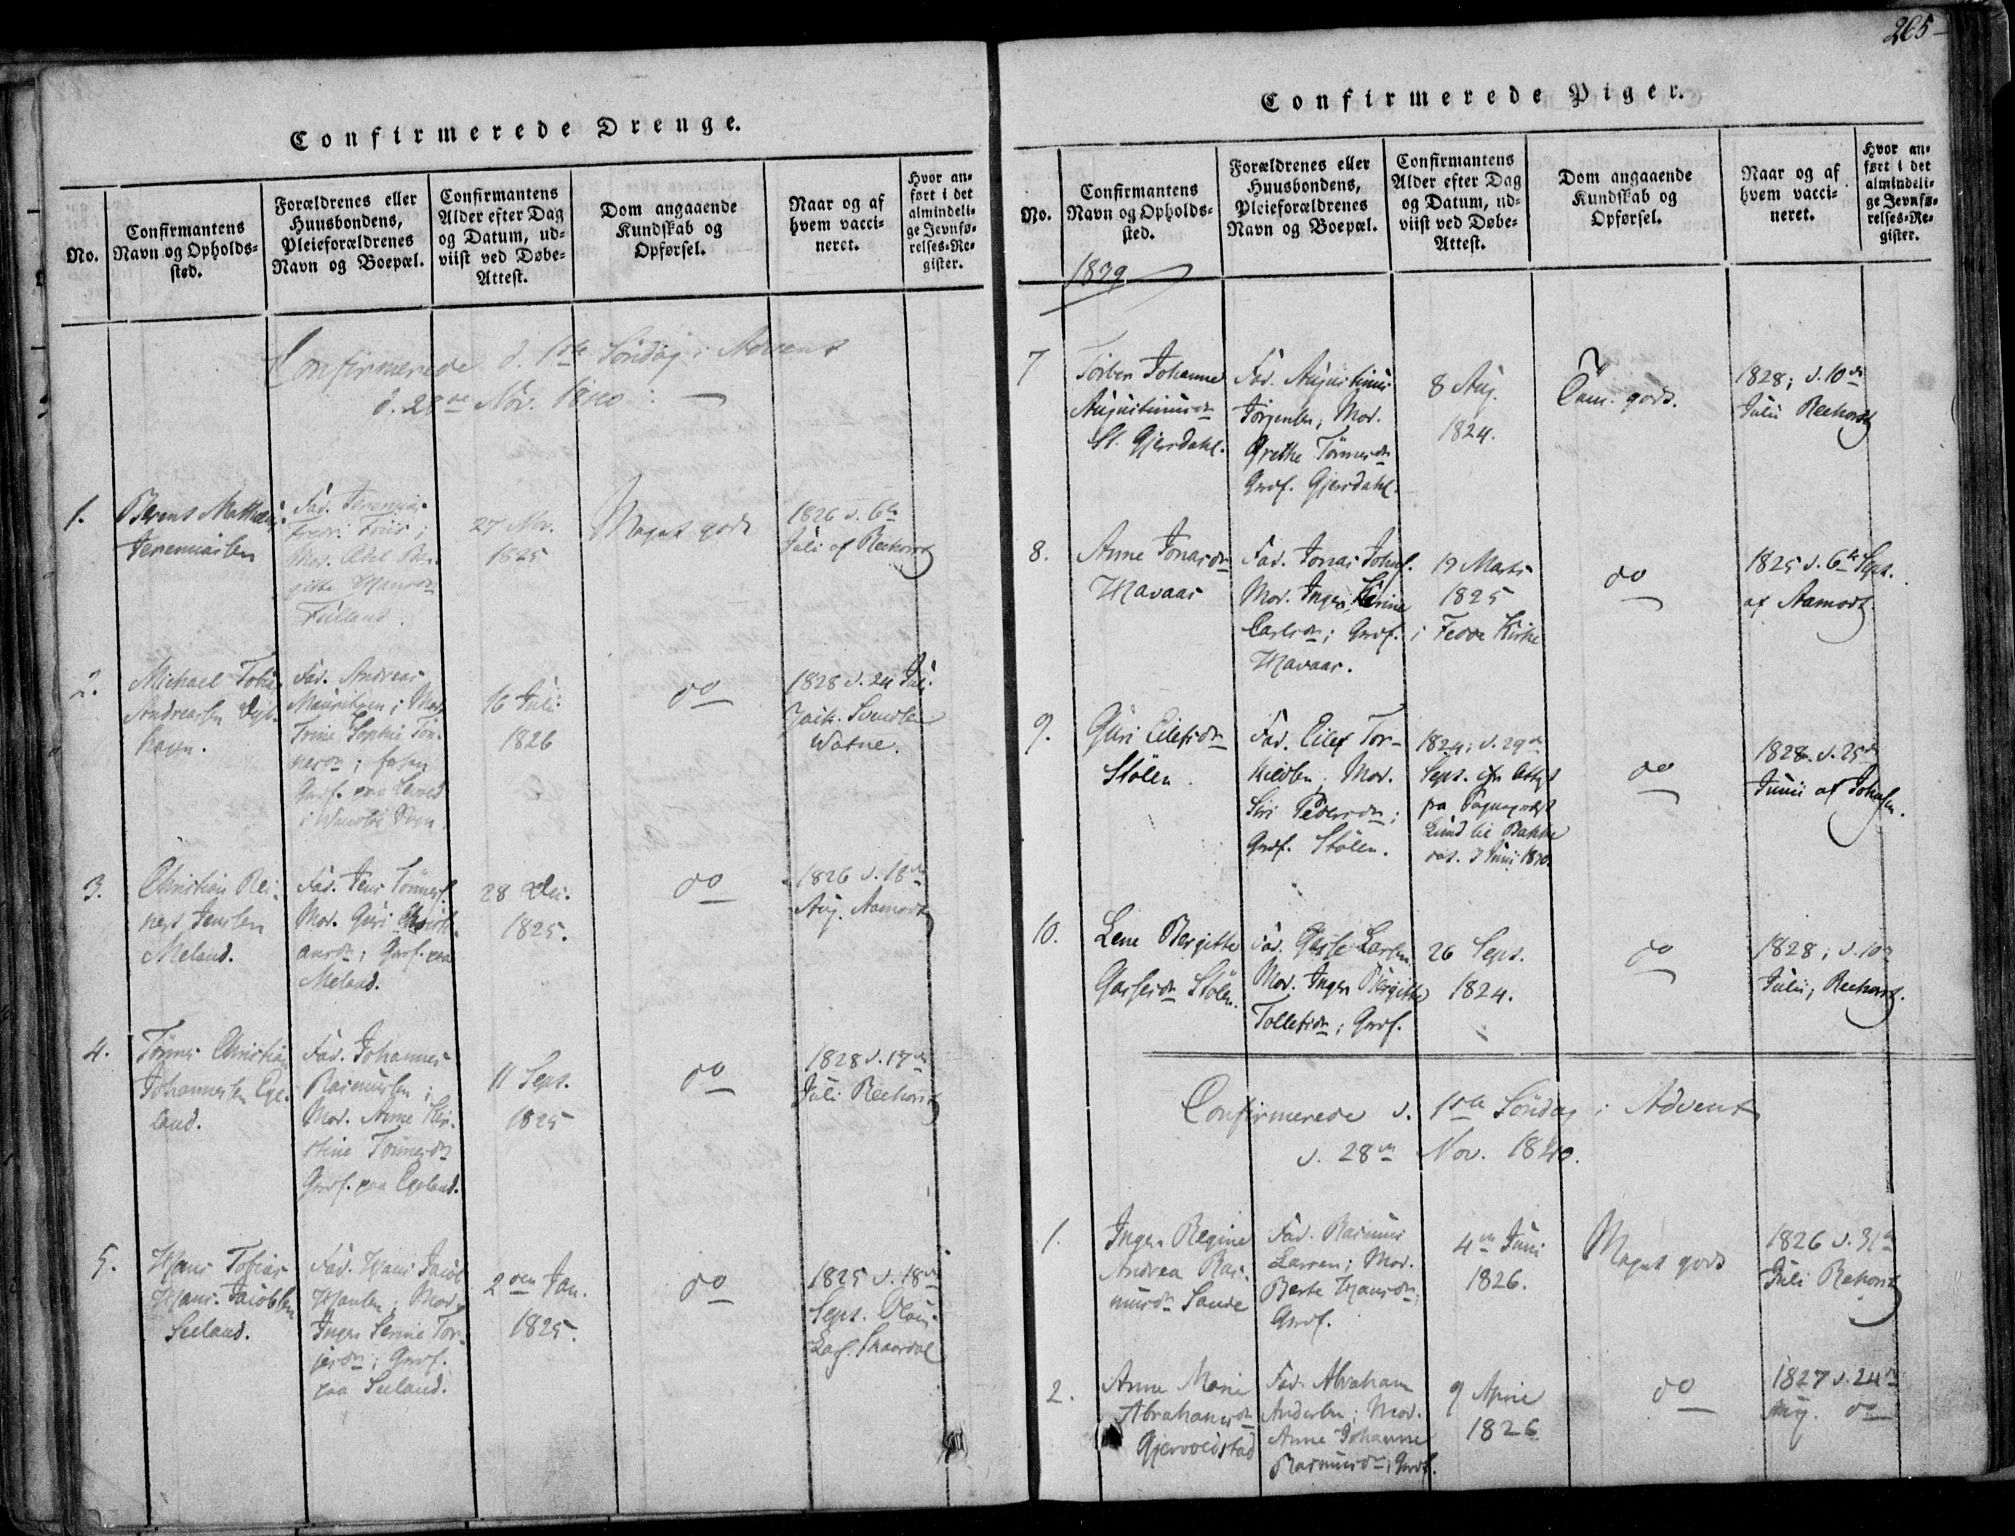 265
Confirmerede Drenge.
No.
Confirmantens
Navn og Opholds-
sted.
Forældrenes eller
Huusbondens,
Pleieforældrenes
Navn og Boepæl.
Confirmantens
Alder efter Dag
og Datum, ud-
viist ved Døbe-
Attest.
Dom angaaende
Kundskab og
Opførsel.
Naar og af
hvem vacci-
neret.
Hvor an-
ført i det
almindeli-
ge Jevnfø-
relses-Re-
gister.
Confirmerede d. 1ste Söndag i Advent
d. 28de Nov. 1840.
1.
Berent Mathias
Jeremiasen
Fad. Jeremias
Fredr. Friis;
Mor.
Hansdr
27 Nov.
1825
Meget godt
1826 d. 6te
Juli af Reehorst
2.
Michael Tobias
Andreasen
hagen.
Fad. Andreas
Mauritzen; Mod.
Trine Sophie Tön-
nesdr;
Gmf. paa
16 Juli
1826
do
1828 d. 24 Juli
Svendsen
Watne.
3.
Christian Rei-
nert Jensen
Meland.
Fad. Jens Tönnesf.
Mod. Guri Christi-
ansdr; Gmf. paa
Meland.
28 Dec.
1825.
do
1826 d. 18de
Aug. Aamodt
4.
Tönnes Christian
Johannesen Ege-
land.
Fad. Johannes
Rasmusen;
Mod. Anne Kir-
stine Tönnesdr
Gmf. paa Egeland.
11 Sept.
1825
do
1828 d. 17de
Juli Reehorst
5.
Hans Tobias
Hans-Jacobsen
Seeland.
Fad. Hans Jacob
Hansen; Mod.
Inger Serine Tor-
jersdr; Gmf.
paa Seeland.
2den Jan.
1825.
do
1825 d. 18de
Sept. Olaus
Lars. Skaardal
Confirmerede Piger.
No.
Confirmantens
Navn og Opholds-
sted.
Forældrenes eller
Huusbondens,
Pleieforældrenes
Navn og Boepæl.
Confirmantens
Alder efter Dag
og Datum, ud-
viist ved Døbe-
Attest.
Dom angaaende
Kundskab og
Opførsel.
Naar og af
hvem vacci-
neret.
Hvor an-
ført i det
almindeli-
ge Jevnfø-
relses-Re-
gister.
1839
7
Torber Johanne
Augustinusdr
St. Gjersdahl.
Fad. Augustinus
Jörgensen; Mod.
Grethe Tönnesdr
Gmf. Gjersdahl.
8 Aug.
1824.
Tem. godt.
1828; d. 10de
Julii Reehorst
8.
Anne Jonasdr
Havaas
Fad. Jonas Johnf.
Mod. Inger Serine
Carlsdr; Gmf.
Havaas.
19 Marts
1825
i Fede Kirke
do
1825 d. 6te Sept.
af Aamodt.
9.
Guri Eilefsdr
Stölen.
Fad. Eilef Tor-
kildsen; Mod.
Siri Pedersdr;
Gmf. Stölen.
1824; d. 29de
Sept. efter Attest
fra Sognepræst
Lund til Bakke
dat. 3 Juni 1840.
do
1828 d. 25de
Junii af Johnsen.
10.
Lene Bergitte
Garsesdr Stölen.
Fad. Garse Larsen.
Mod. Inger Bergitte
Tollefsdr; Gmf.
26 Sept.
1824.
do
1828; d. 10de
Julii, Reehorst.
Confirmerede d. 1ste Söndag i Advent
d. 28de Nov. 1840.
1.
Inger Regine
Andrea Ras-
musdr Sande
Fad. Rasmus
Larsen; Mod.
Berte Hansdr;
Gmf.
4de Juni
1826.
Meget godt
1826 d. 31te
Juli Rehorst
2.
Anne Marie
Abrahamsdr
Gjervoldstad
Fad. Abraham
Andersen; Mod.
Anne Johanne
Rasmusdr; Gmf.
9 April
1826
do
1827 d. 24de
Aug. do